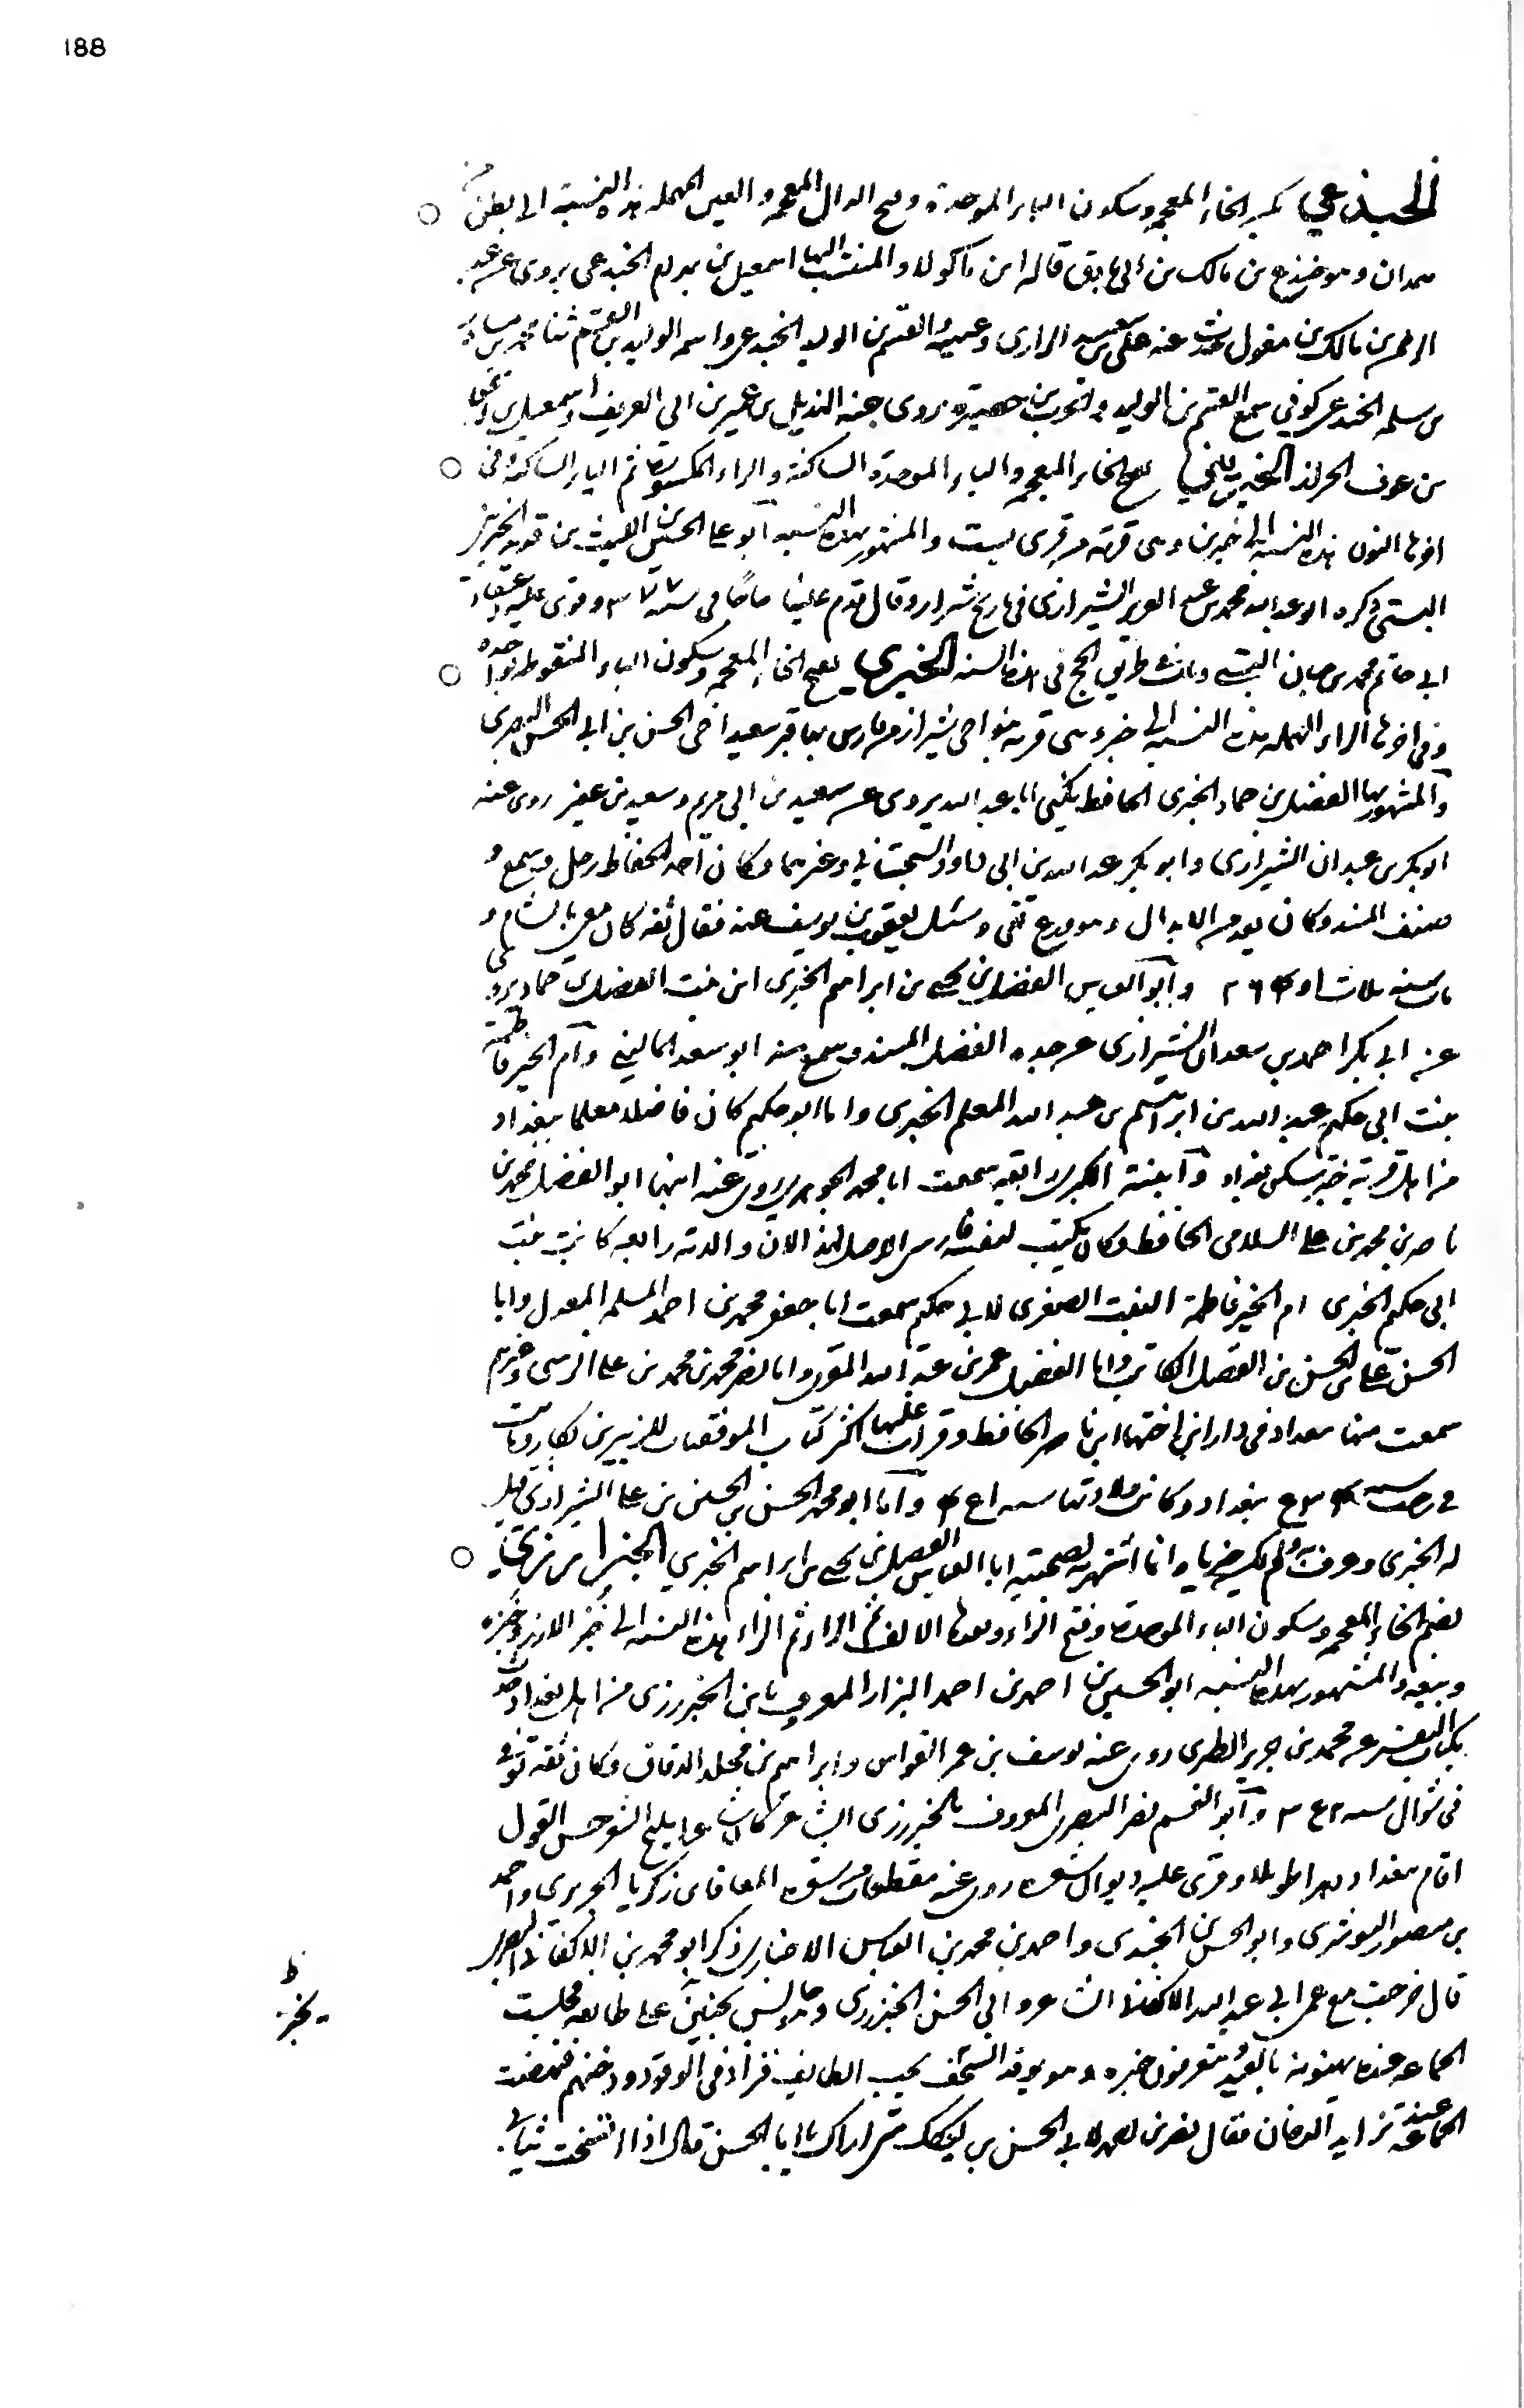 188
الخبذعي بكسر الخاء المعجمه وسكون الباء الموحدة وفتح الدال المعجمه والعين المهمله هذه النسبة الى بطن من
همدان وهو خبذع بن مالك بن ذي بارق قاله ابن ماكولا والمنتسب اليها اسمعيل بن بهرام الخبذعى يروى عن عبد
الرحمن بن مالك بن مغول حدث عنه على بن سعيد الرازى وغيره والقسم بن الوليد الخبذعى واسم الوليد بن القسم ثنا محمد بن
بن سلمه الخبذعى كوفي سمع القسم بن الوليد روى عنه الهذيل بن عمير بن ابي العريف واسمعيل بن
بن عوف الخبريني بفتح الخاء المعجمه والباء الموحدة الساكنة والراء المكسورة ثم الياء الساكنة وفى
اخرها النون هذه النسبة الى خبرين وهى قرية من قرى بست والمشهور بهذه النسبه ابو على الحسين بن الليث بن الخبرينى
البستي ذكره ابو عبد الله محمد بن عبد العزيز الشيرازى فى تاريخ شيراز وقال قدم علينا حاجا فى سنه ٣٧٧ وقرى عليه
ابي حاتم محمد بن حبان البستى ومات فى طريق الحج فى هذه السنه الخبري بفتح الخاء المعجمه وسكون الباء المنقوطه بواحده
وفى اخرها الراء المهمله هذه النسبه الى خبر وهى قريه بنواحى شيراز من فارس بها قبر سعيد اخى الحسن بن ابى الحسن البصرى
والمشهور بها الفضل بن حماد الخبرى الحافظ يكنى ابا عبد الله يروى عن سعيد بن ابى مريم وسعيد بن عفير روى عنه
ابو بكر بن عبدان الشيرازى وابو بكر عبد الله بن ابى داود السجستاني وغيرهما وكان احد الحفاظ رحل وسمع و
صنف المسند وكان يعد من الابدال وهو ورع تقى وسئل يعقوب بن يوسف عنه فقال ثقه كان معى بالشام و
مات سنه ثلاث او ٢٦٤ وابو العباس الفضل بن يحيى بن ابراهيم الخبرى ابن بنت الفضل بن حماد يروى
عنه ابى بكر احمد بن سعدان الشيرازى عن جده الفضل المسند وسمع منه ابو سعد المالينى وام الخير فاطمة
بنت ابى حكيم عبد الله بن ابراهيم بن عبد الله المعلم الخبرى واما ابو حكيم كان فاضلا معلما ببغداد
من اهل قرية خبر سكن بغداد وابنته الكبرى رابعه سمعت ابا محمد الجوهرى روى عنه ابنها ابو الفضل محمد بن
ناصر بن محمد بن على السلامى الحافظ وكان يكتب لنفسه فارسى الاصل لان والدته رابعه كانت بنت
ابى حكيم الخبرى ام الخير فاطمة البنت الصغرى لابى حكيم سمعت ابا جعفر محمد بن احمد المسلمة المعدل وابا
الحسن على بن الحسن بن الفضل الكاتب وابا الفضل عمر بن عبيد الله المقرى وابا نصر محمد بن محمد بن على الزينبى وغيرهم
سمعت منها ببغداد فى دار ابن اختها ابن ناصر الحافظ وقرات عليها اكثر كتاب الموفقيات للزبير بن بكار وماتت
فى رجب سنه ببغداد وكانت ولادتها سنه واما ابو محمد الحسن بن الحسين بن على الشيرازى قيل
له الخبرى وعرف به ولم يكن خبريا وانما اشتهر به لصحبته ابا العباس الفضل بن يحيى بن ابراهيم الخبري الخبزارزي
بضم الخاء المعجمه وسكون الباء الموحدة وفتح الزاء وبعدها الالف ثم الراء ثم الزاء هذه النسبه الى خبز الارز وخبزه
وبيعه والمشهور بهذه النسبه ابو الحسين بن احمد بن احمد البزاز المعروف بابن الخبزرزى من اهل بغداد حدث
بكتاب التفسير عن محمد بن جرير الطبرى روى عنه يوسف بن عمر القواس وابراهيم بن مخلد الدقاق وكان ثقه توفى
فى شوال سنه وابو القسم نصر البصرى المعروف بالخبزرزى الشاعر كان مليح الشعر حسن القول
اقام ببغداد دهرا طويلا وقرى عليه ديوان شعره روى عنه مقطعات من شعره المعافى بن زكريا الجريرى واحمد
بن منصور اليوشرى وابو الحسن بن الجندى واحمد بن محمد بن العباس الاخبارى ذكر ابو محمد بن الاكفانى البصرى
قال خرجت مع عمى ابى عبد الله الاكفانى الشاعر وابى الحسن الخبزرزى وهو جالس يخبز على طابقه فجلست
الجماعه عنده يهنونه بالعيد ويتعرفون خبره وهو يوقد السعف تحت الطابق فزاد فى الوقود ودخنهم فنهضت
الجماعه عند تزايد الدخان فقال نصر بن احمد لابى الحسن بن لنكك متى اراك يا ابا الحسن قال اذا اتسخت ثيابى
ظ
يخبز